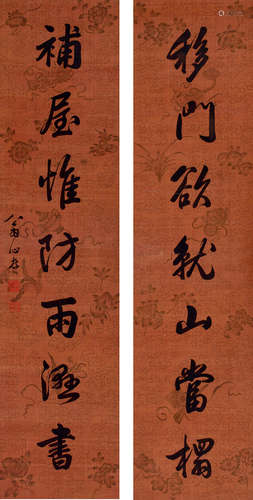 移門欲就山當榻
補屋惟防雨溼書
翁心存